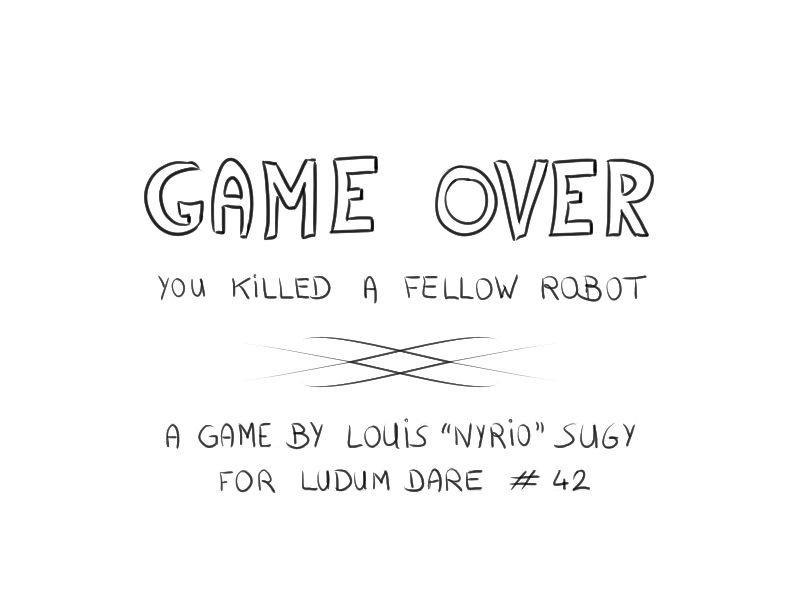 GAME OVER
YOU KiLLED A FELLOW ROBOT
A GAME BY LOUiS “NYRiO” SUGY
FOR LUDUM DARE # 42